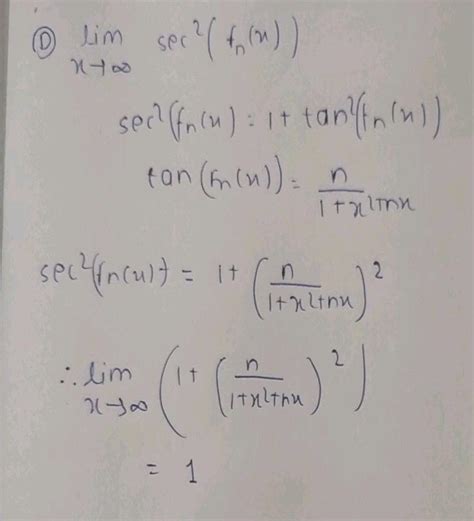 Ⓓ lim x→∞ sec²(fₙ(x))
sec²(fₙ(x) = 1 + tan²(fₙ(x))
tan(fₙ(x)) = n / 1+x²+nx
sec²(fₙ(x)) = 1 + (n / 1+x²+nx)²
∴ lim x→∞ (1 + (n / 1+x²+nx)²)
= 1